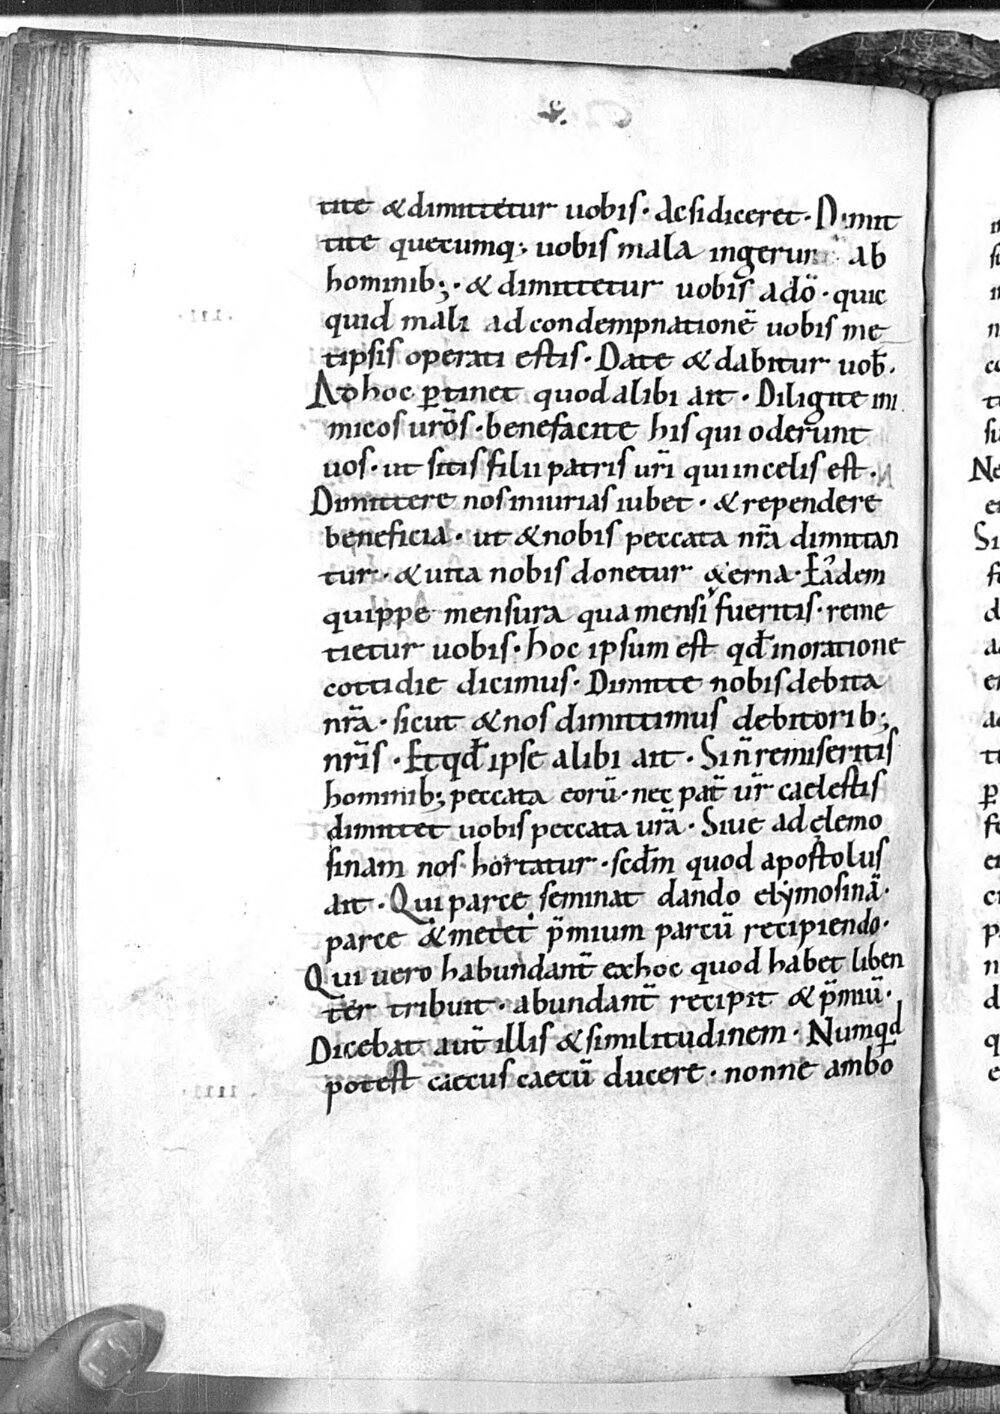 tite &dimittetur uobis. acsidiceret. Dimit
tite quecumq; uobis mala ingerunt ab
hominib;. & dimittetur uobis adō. quic
quid mali ad condempnationē uobis me
tipsis operati estis. Date &dabitur uob̄.
Ad hoc ptinet quod alibi ait. Diligite ini
micos urōs. benefacite his qui oderunt
uos. ut sitis filii patris urī qui incelis est.
Dimittere nos iniurias iubet. & rependere
beneficia. ut &nobis peccata nrā dimittan
tur. &uita nobis donetur &erna. Eadem
quippe mensura qua mensi fueritis. reme
tietur uobis. hoc ipsum est qđ inoratione
cottidie dicimus. Dimitte nobis debita
nrā. sicut &nos dimittimus debitorib;
nrīs. Et qđ ipse alibi ait. Sin̄ remiseritis
hominib; peccata eorū. nec pat̄ ur̄ caelestis
dimittet uobis peccata urā. Siue ad elemo
sinam nos hortatur. scđm quod apostolus
ait. Qui parce seminat dando elymosinā.
parce &metet p̄mium parcū recipiendo.
Qui uero habundant̄ exhoc quod habet liben
ter tribuit. abundant̄ recipit & p̄miū.
Dicebat aut̄ illis &similitudinem. Numqd
potest caecus caecū ducere. nonne ambo